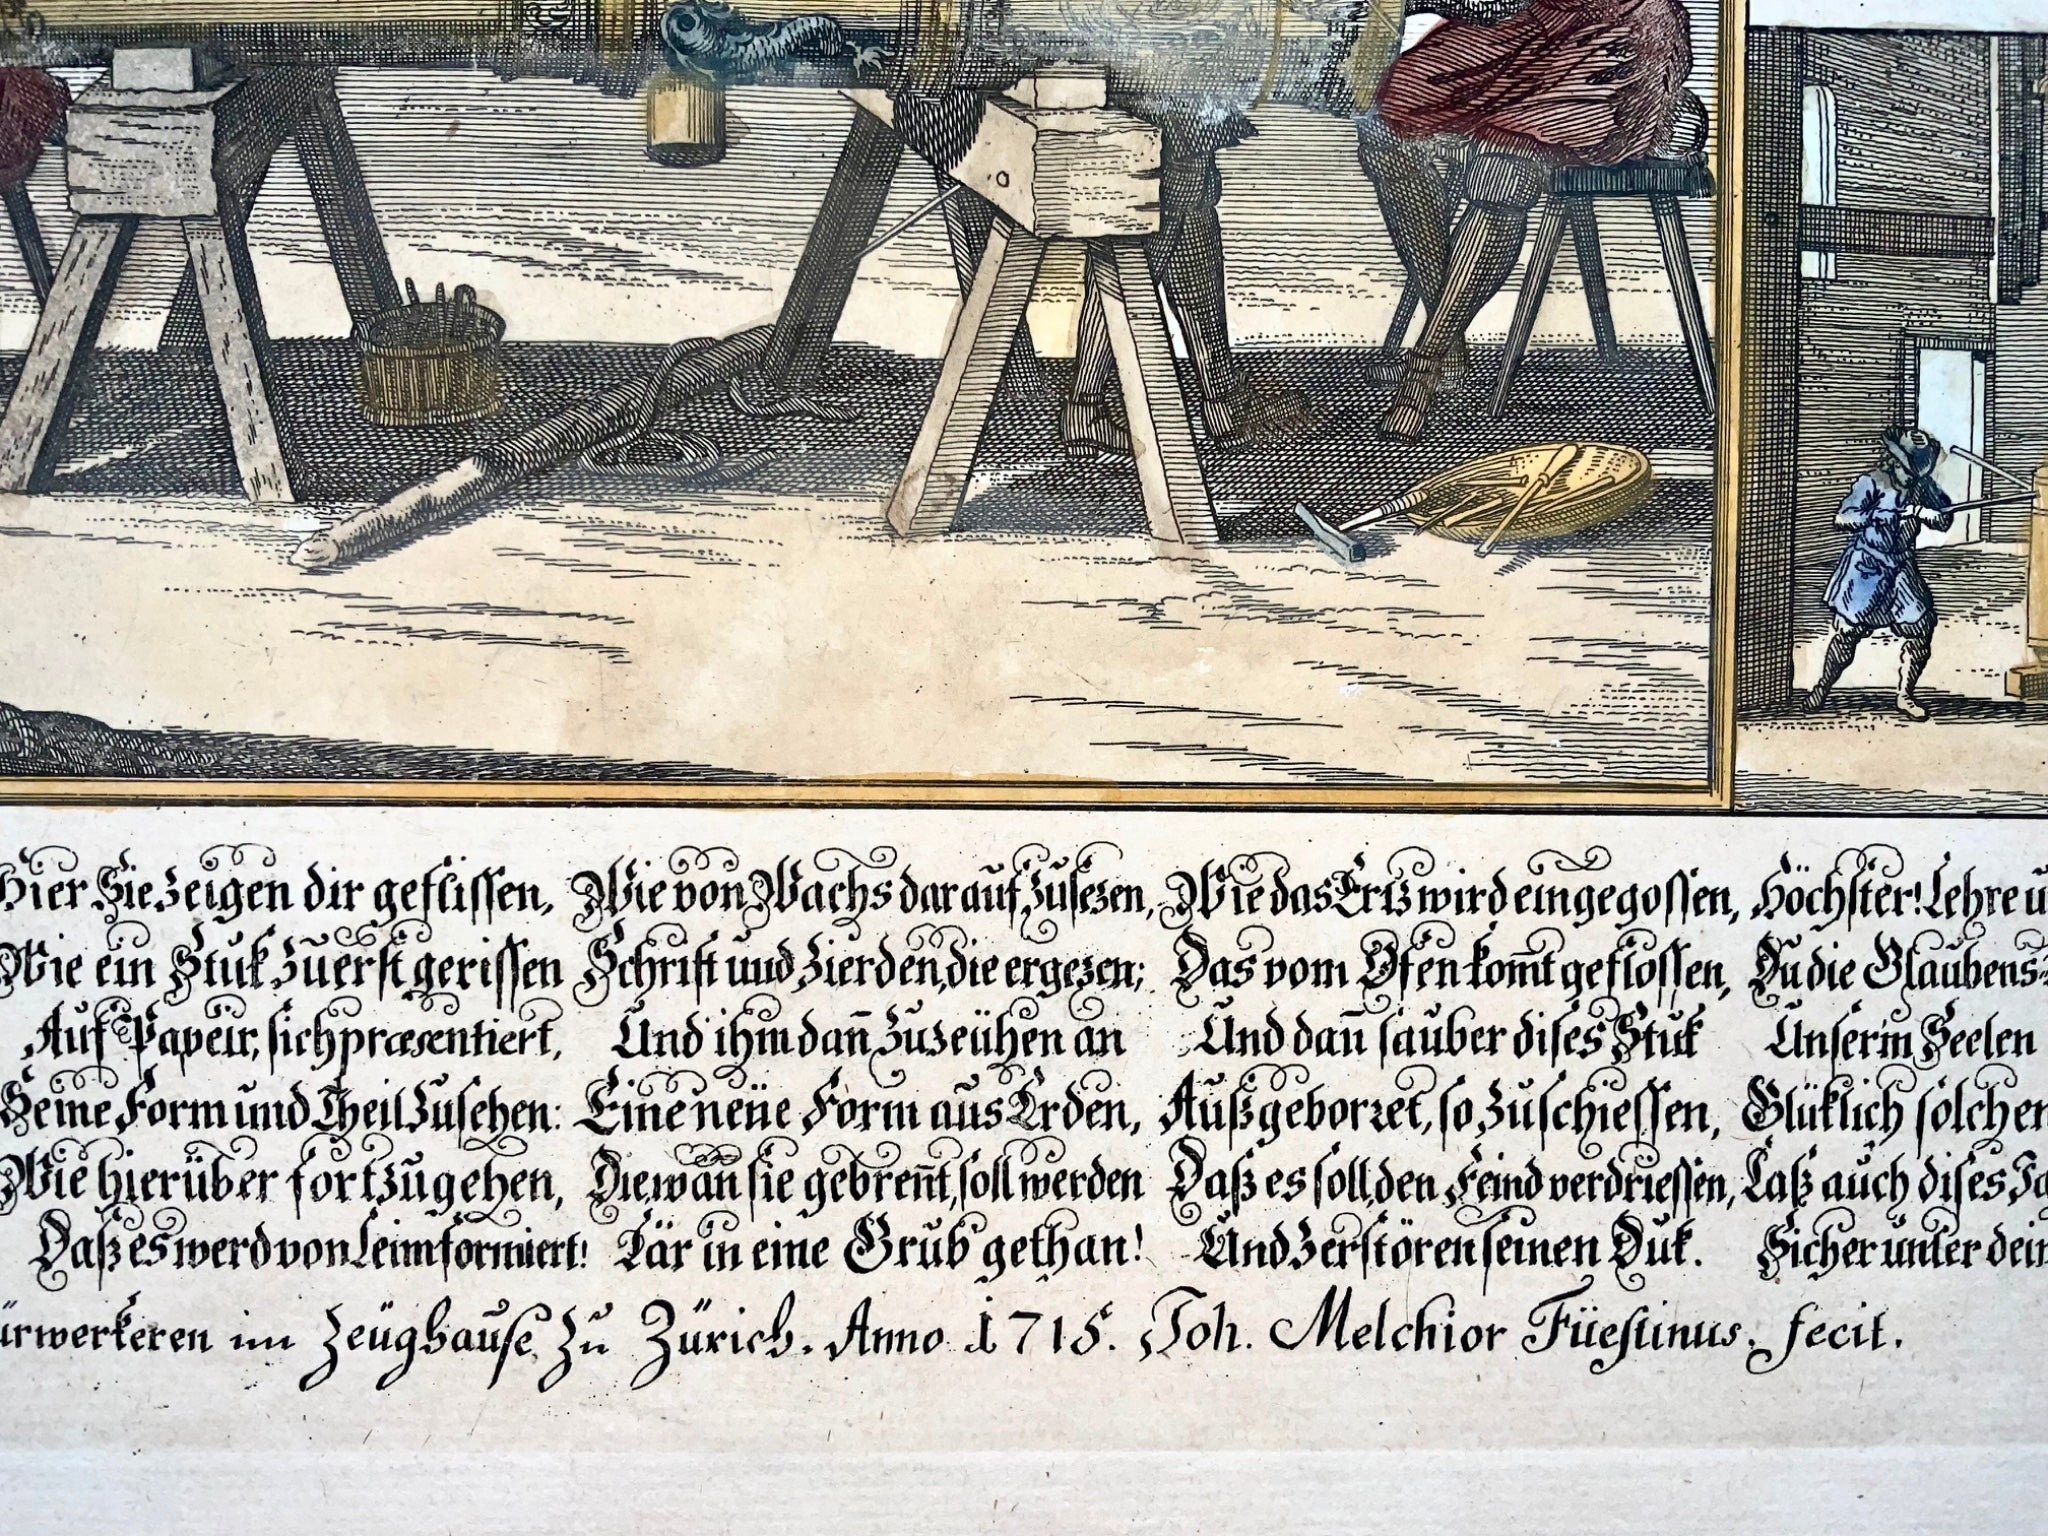 Hier Sie zeigen dir geflissen,
Wie ein Stuk zuerst gerissen
Auf Papeir, sich præsentiert,
Seine Form und Theil zusehen:
Wie hierüber fortzugehen,
Daß es werd von Leim formiert!
Wie von Wachs darauf zusezen,
Schrift und Zierden, die ergezen;
Und ihm dañ zuzeühen an
Eine neüe Form aus Erden,
Die, wañ sie gebreñt, soll werden
Tär in eine Grub gethan!
Wie das Ertz wird eingegossen,
Das vom Ofen kom̃t geflossen,
Und dañ sauber dises Stuk
Außgeborzet, so zuschiessen,
Daß es soll, den Feind verdriessen,
Und Zerstören seinen Duk.
Höchster! Lehre u
Du die Glaubens-
Unserm Seelen
Glüklich solchen
Laß auch dises Ja
Sicher unter dein
ürwerkeren im Zeüghause zu Zürich. Anno 1715. Joh. Melchior Füeslinus. fecit.